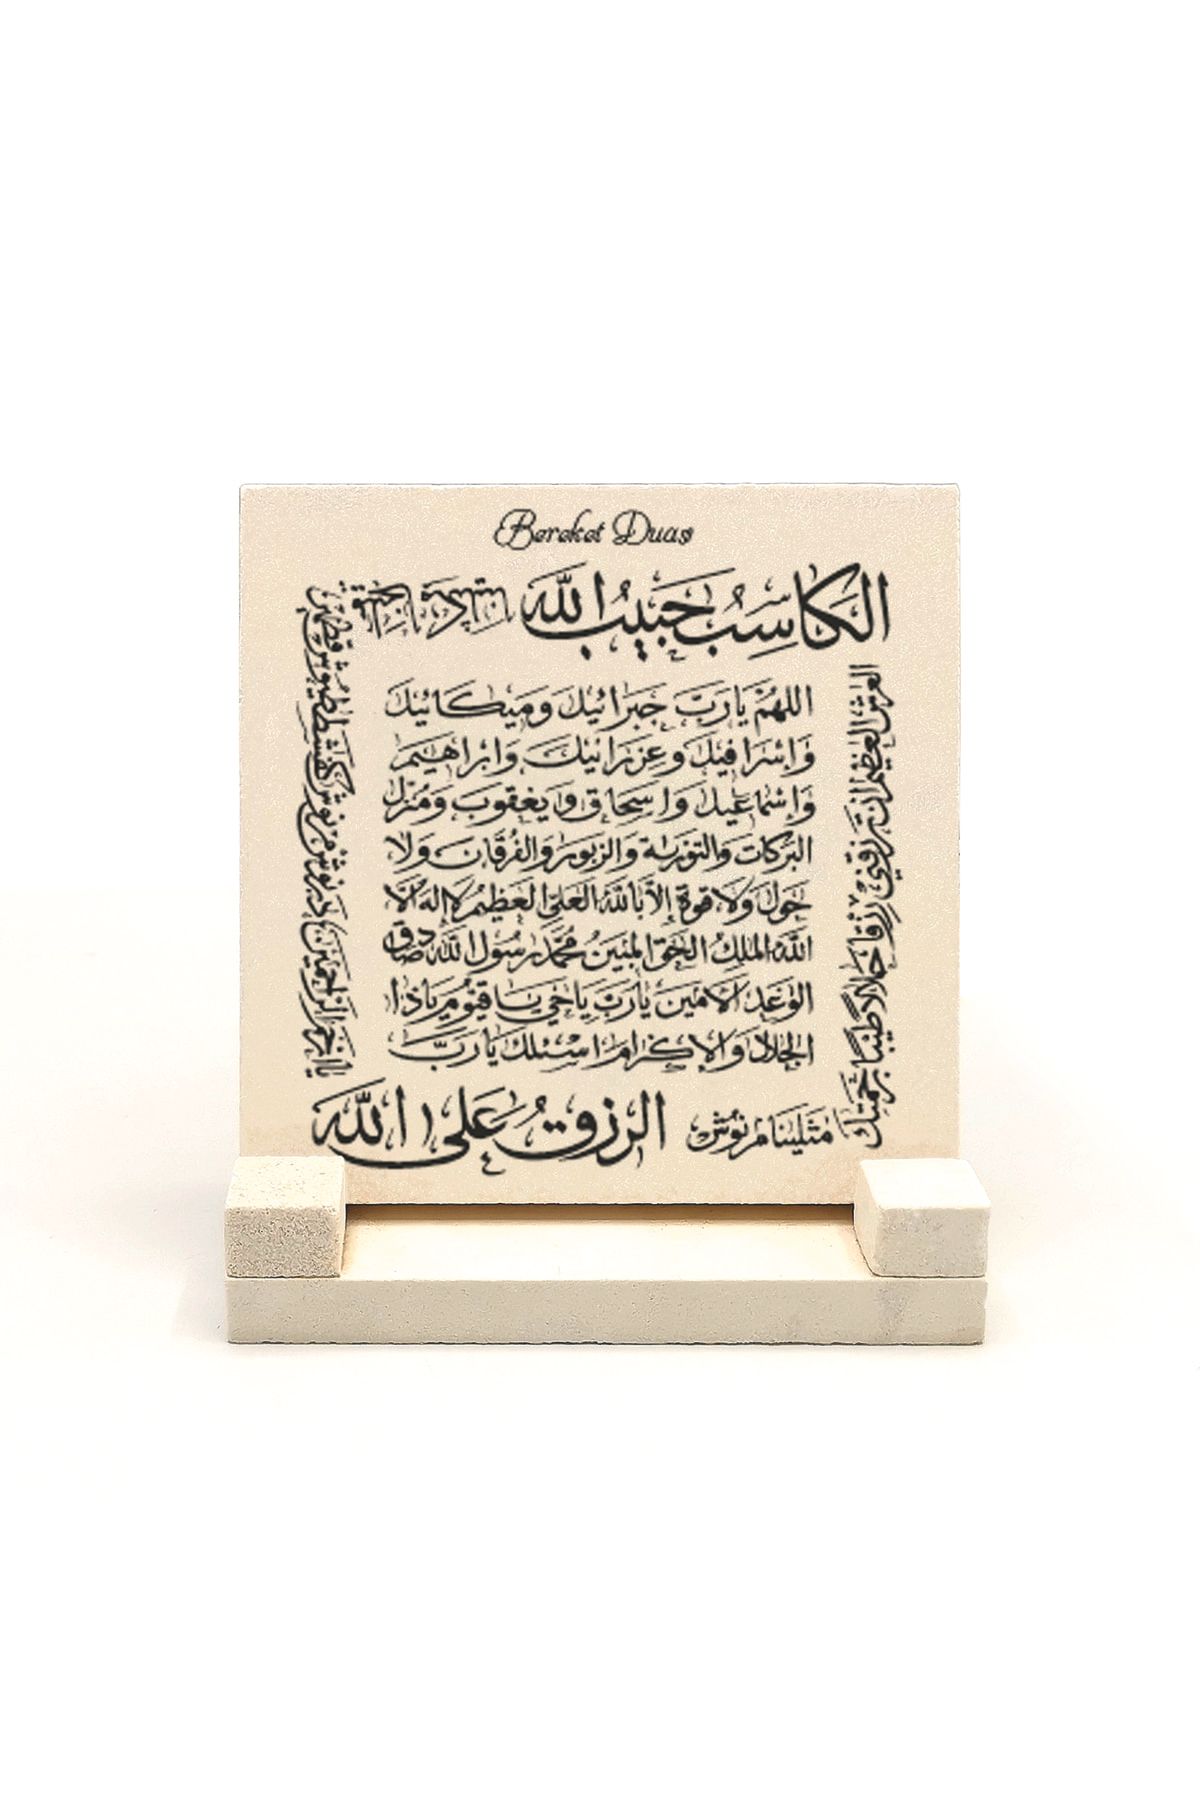 Bereket Duası
الكاسب حبيب الله
اللهم يارب جبرائيل وميكائيل
وإسرافيل وعزرائيل وابراهيم
وإسماعيل واسحاق ويعقوب ومنزل
البركات والتورية والزبور والفرقان ولا
حول ولا قوة إلا بالله العلى العظيم لا إله الا
الله الملك الحق المبين محمد رسول الله صادق
الوعد الامين يارب ياحي ياقيوم ياذا
الجلال والإكرام اسئلك يارب
العرش العظيم ان ترزقني رزقا حلالا طيبا برحمتك
يا ارحم الراحمين
الرزق على الله